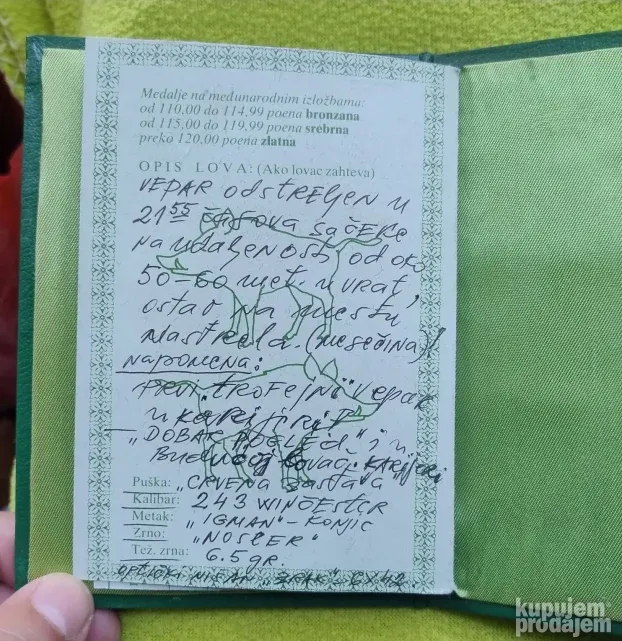 Medalje na međunarodnim izložbama:
od 110,00 do 114,99 poena bronzana
od 115,00 do 119,99 poena srebrna
preko 120,00 poena zlatna
OPIS LOVA: (Ako lovac zahteva)
VEPAR odstreljen u
21 55 časova SA čeke
na udaljenosti od oko
50-60 met. u vrat,
ostao na mestu
Nastrela. (mesečina)!
napomena:
PRVI "TROFEJNI" Vepar
u karijeri
"DOBAR POGLED" i u
Budućoj lovač. karijeri
Puška: "CRVENA ZASTAVA"
Kalibar: 243 WINČESTER
Metak: "IGMAN" - KONJIC
Zrno: "NOSLER"
Tež. zrna: 6.5 gr
OPTIČKI NIŠAN "ZRAK" - 6x42
kupujem
prodajem